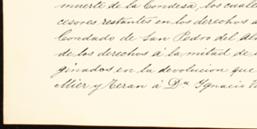 muerte de la Condesa, los cuale
cesores restantes en los derechos a
Condado de San Pedro del Al
de los derechos á la mitad de
ginados en la devolucion que
Mier y Teran á Dª Ignacia